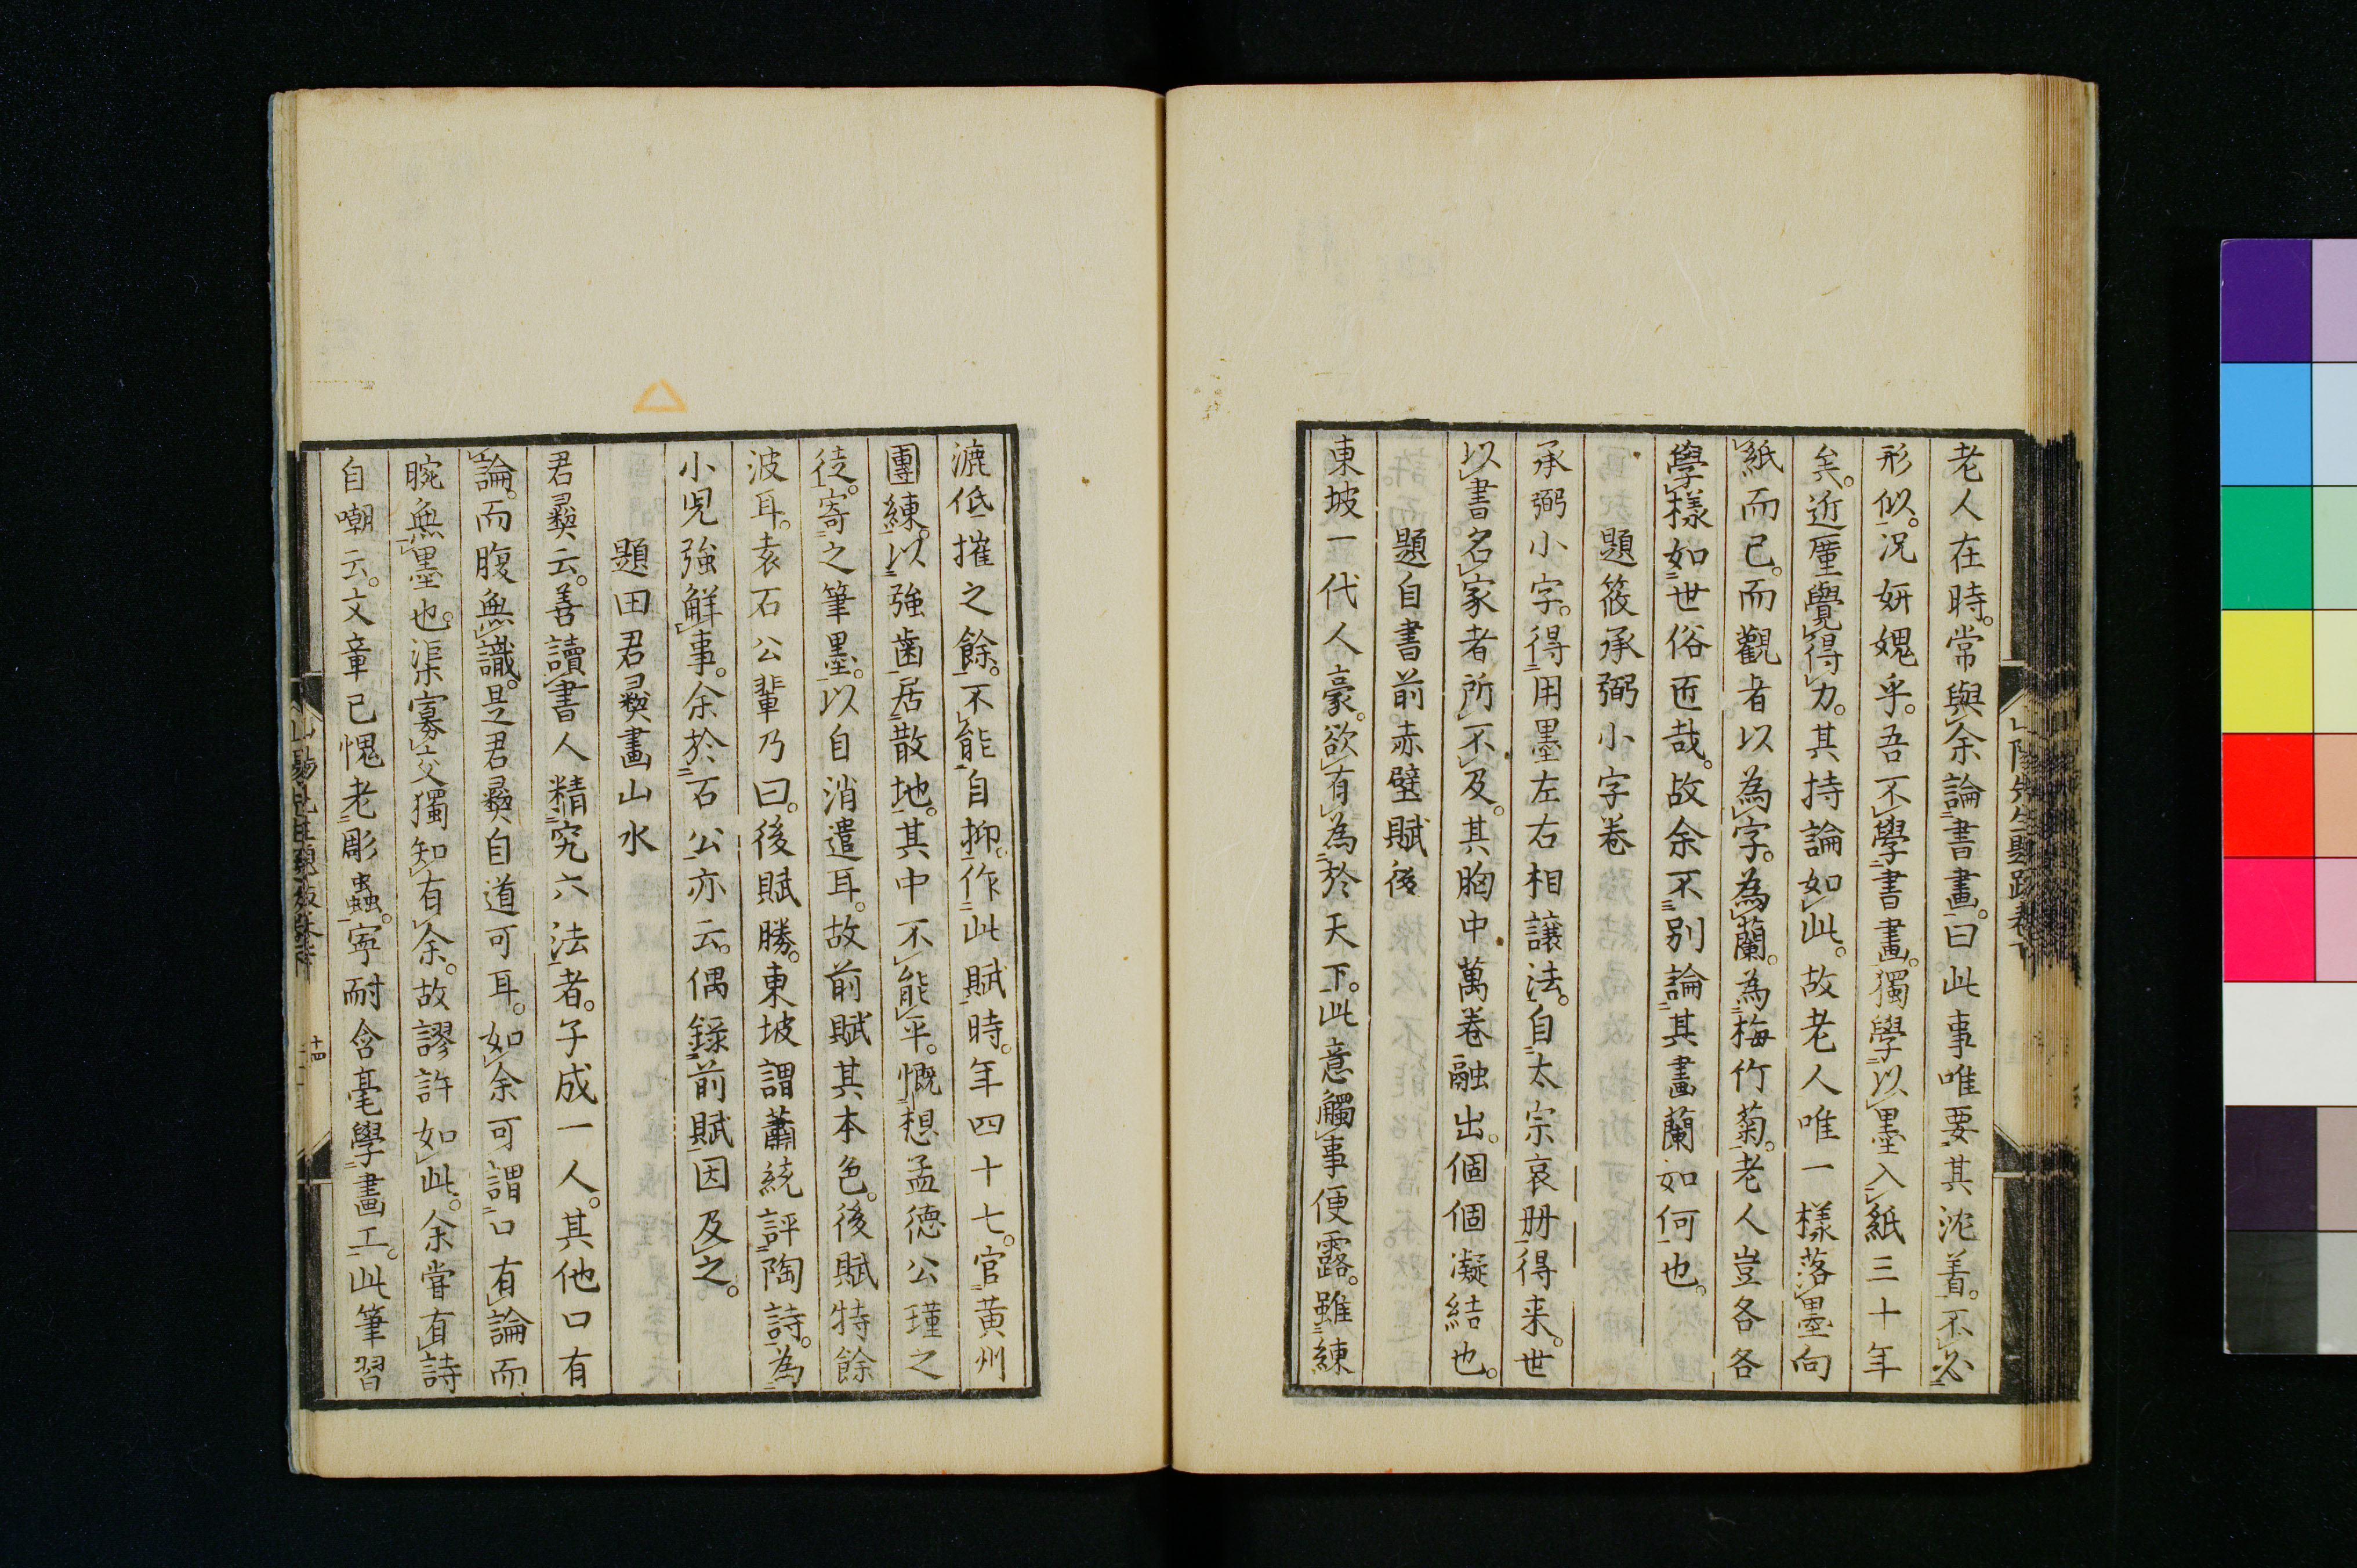 老人在時。常與余論書畫。曰。此事唯要其沈着。不必
形似。况妍媸乎。吾不學書畫。獨學以墨入紙三十年
矣。近厪覺得力。其持論如此。故老人唯一樣落墨向
紙而已。而觀者以為字。為蘭。為梅竹菊。老人豈各各
學樣如世俗匠哉。故余不別論其畫蘭如何也。
題筱承弼小字卷
承弼小字。得用墨左右相讓法。自太宗哀册得来。世
以書名家者所不及。其胸中萬卷融出。個個凝結也。
題自書前赤壁賦後
東坡一代人豪。欲有為於天下。此意觸事便露。雖練
漉低摧之餘。不能自抑。作此賦時。年四十七。官黄州
團練。以強歯居散地。其中不能平。慨想孟徳公瑾之
徒。寄之筆墨。以自消遣耳。故前賦其本色。後賦特餘
波耳。袁石公輩乃曰。後賦勝。東坡謂蕭統評陶詩。為
小児強解事。余於石公亦云。偶録前賦因及之。
題田君彛畫山水
君彛云。善讀書人精究六法者。子成一人。其他口有
論。而腹無識。是君彛自道可耳。如余可謂口有論而
腕無墨也。渠寡交獨知有余。故謬許如此。余嘗有詩
自嘲云。文章已愧老彫蟲。寧耐含毫學畫工。此筆習
山陽先生題跋卷下
十四